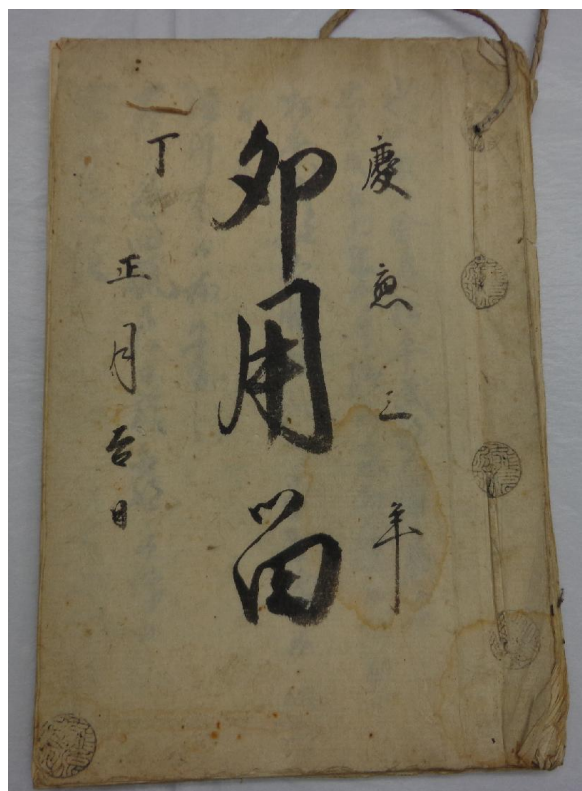 慶応三年
卯用畄
丁
正月吉日